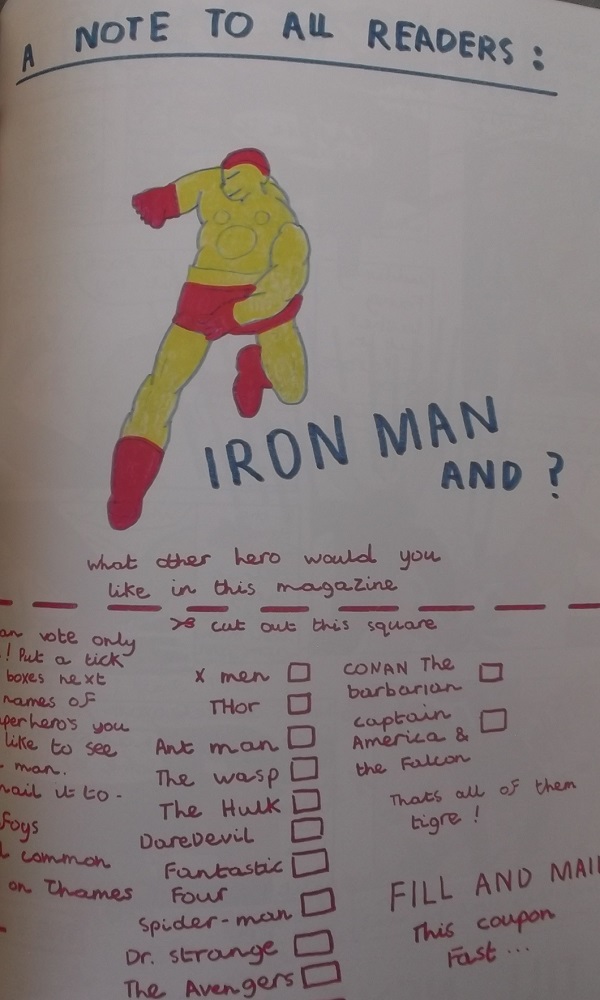 A NOTE TO ALL READERS:
IRON MAN
AND ?
what other hero would you
like in this magazine
cut out this square
an vote only
! Put a tick
boxes next
names of
perhero's you
like to see
man.
mail it to -
Foys
common
on Thames
X men
THor
Ant man
The wasp
The Hulk
DareDevil
Fantastic
Four
Spider-man
Dr. strange
The Avengers
CONAN The
barbarian
captain
America &
the Falcon
Thats all of them
tigre !
FILL AND MAIL
This coupon
Fast ...